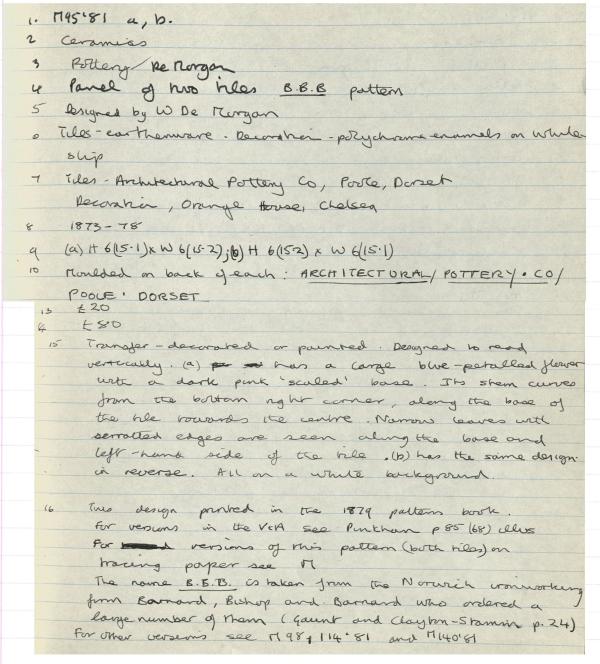 1. M95'81 a, b.
2 Ceramics
3 Pottery/De Morgan
4 Panel of two tiles B.B.B pattern
5 Designed by W De Morgan
6 Tiles - earthenware. Decoration - polychrome enamels on white
slip
7 Tiles - Architectural Pottery Co, Poole, Dorset
Decoration, Orange House, Chelsea
8 1873-78
9 (a) H 6(15.1) x W 6(15.2); (b) H 6(15.2) x W 6(15.1)
10 Moulded on back of each: ARCHITECTURAL/ POTTERY.CO/
POOLE. DORSET
13 £20
14 £80
15 Transfer-decorated or painted. Designed to read
vertically. (a) has a large blue-petalled flower
with a dark pink 'scaled' base. Its stem curves
from the bottom right corner, along the base of
the tile towards the centre. Narrow leaves with
serrated edges are seen along the base and
left-hand side of the tile. (b) has the same design
in reverse. All on a white background.
16 This design printed in the 1879 pattern book.
For versions in the V&A see Pinkham p85 (68) illus
For versions of this pattern (both tiles) on
tracing paper see M
The name B.B.B. is taken from the Norwich ironworking
firm Barnard, Bishop and Barnard who ordered a
large number of them (Gaunt and Clayton-Stamm p.24)
For other versions see M98, 114'81 and M140'81